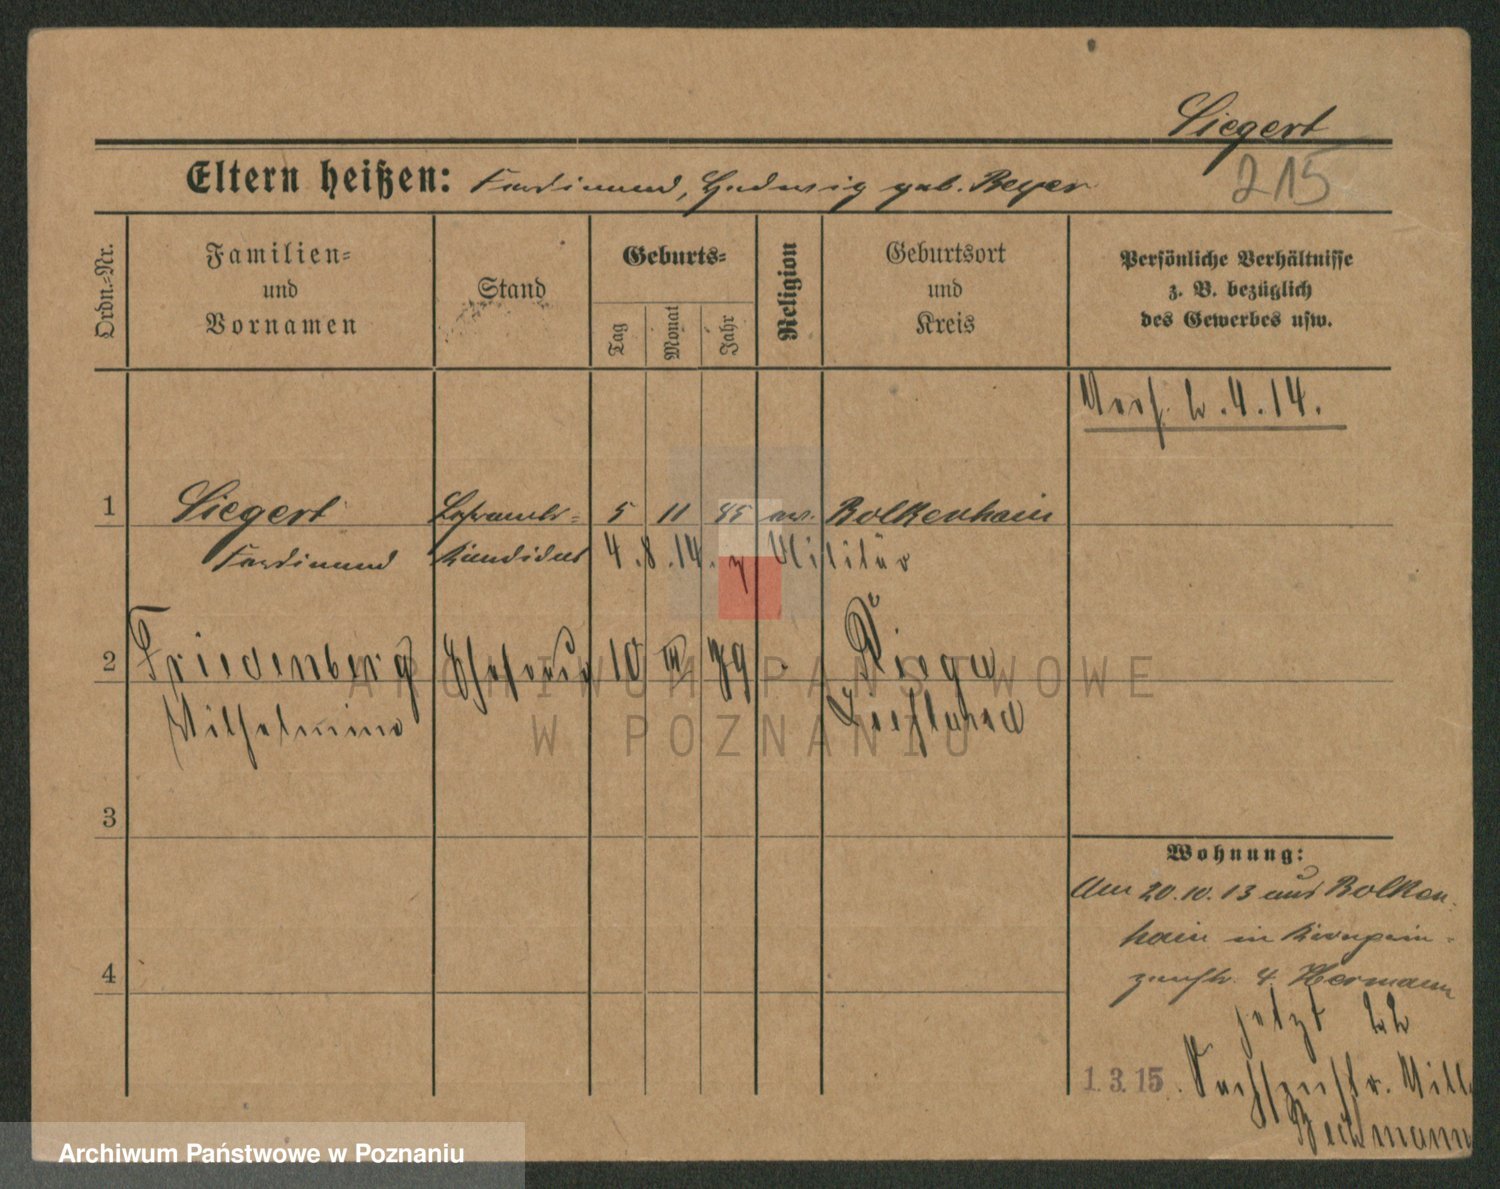 Siegert
215
Eltern heißen: Ferdinand, Hedwig geb. Beyer
Ordn.-Nr.
Familien-
und
Vornamen
Stand
Geburts-
Tag
Monat
Jahr
Religion
Geburtsort
und
Kreis
Persönliche Verhältnisse
z. B. bezüglich
des Gewerbes usw.
4.14.
1 Siegert 5 11 85 ev. Bolkenhain
Ferdinand Kandidat 4.8.14. z Militär
2 Friedenberg Ehefrau 10 79 Riga
Wilhelmine Livland
3
4
Wohnung:
Am 20.10.13 aus Bolken-
hain in Kronprin-
zenstr. 4. Hermann
jetzt
1.3.15.
ARCHIWUM PAŃSTWOWE
W POZNANIU
Archiwum Państwowe w Poznaniu